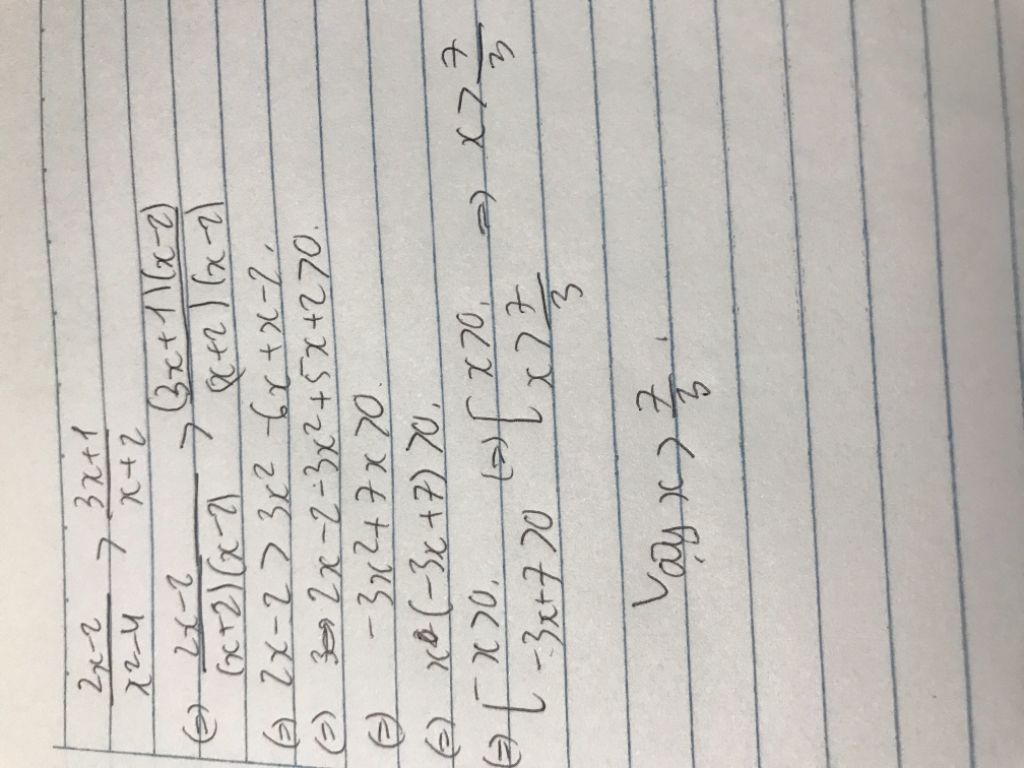 2x-2/x²-4 > 3x+1/x+2
(=) 2x-2/(x+2)(x-2) > (3x+1)(x-2)/(x+2)(x-2)
(=) 2x-2 > 3x² -6x +x-2.
(=) 2x-2-3x²+5x+2>0.
(=) -3x²+7x>0.
(=) x(-3x+7)>0.
(=) [ x>0. (=) [ x>0. =) x>7/3
-3x+7>0 x>7/3
Vậy x>7/3.